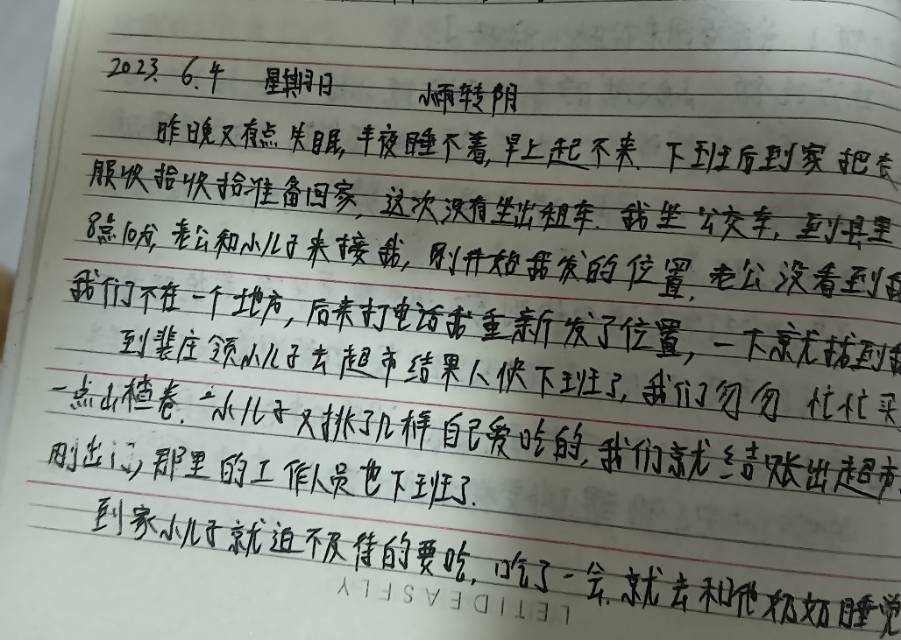 2023. 6.4 星期日 小雨转阴
昨晚又有点失眠,半夜睡不着,早上起不来.下班后到家把衣
服收拾收拾准备回家,这次没有坐出租车.我坐公交车,到县里
8点10分,老公和小儿子来接我,刚开始我发的位置,老公没看到我
我们不在一个地方,后来打电话我重新发了位置,一下就找到我
到裴庄领小儿子去超市结果人快下班了,我们匆匆忙忙买
一点山楂卷.小儿子又挑了几样自己爱吃的,我们就结账出超市.
刚出门,那里的工作人员也下班了.
到家小儿子就迫不及待的要吃,吃了一会.就去和他奶奶睡觉
LETIDEASFLY